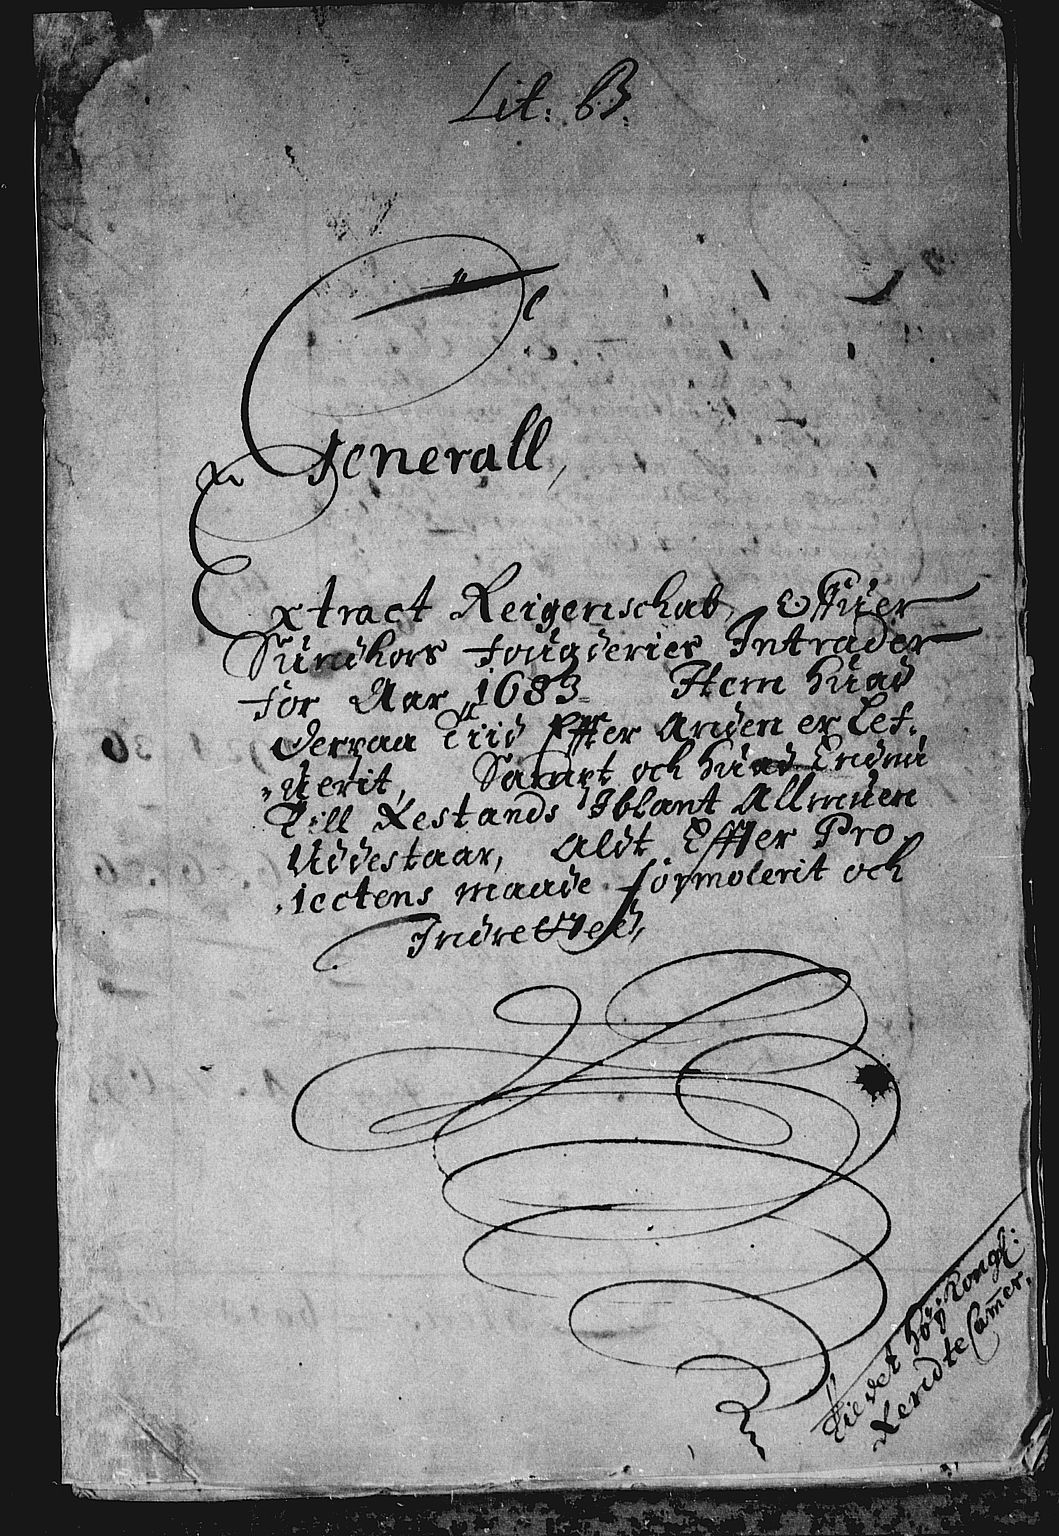 Lit: B:
Generall,
Extract Reigenschab, Offuer
Sundhors fougderies Intrader
for Aar 1683. Item huad
derpaa Tiid Effter Anden er Lef,
,uerit, Sampt och huad Endnu
Till Restands Iblant Allmuen
Uddestaar, Aldt Effter Pro,
,jectens maade formolerit och
Indretted,
Till det høy: Kongl:
Rendte Camer.